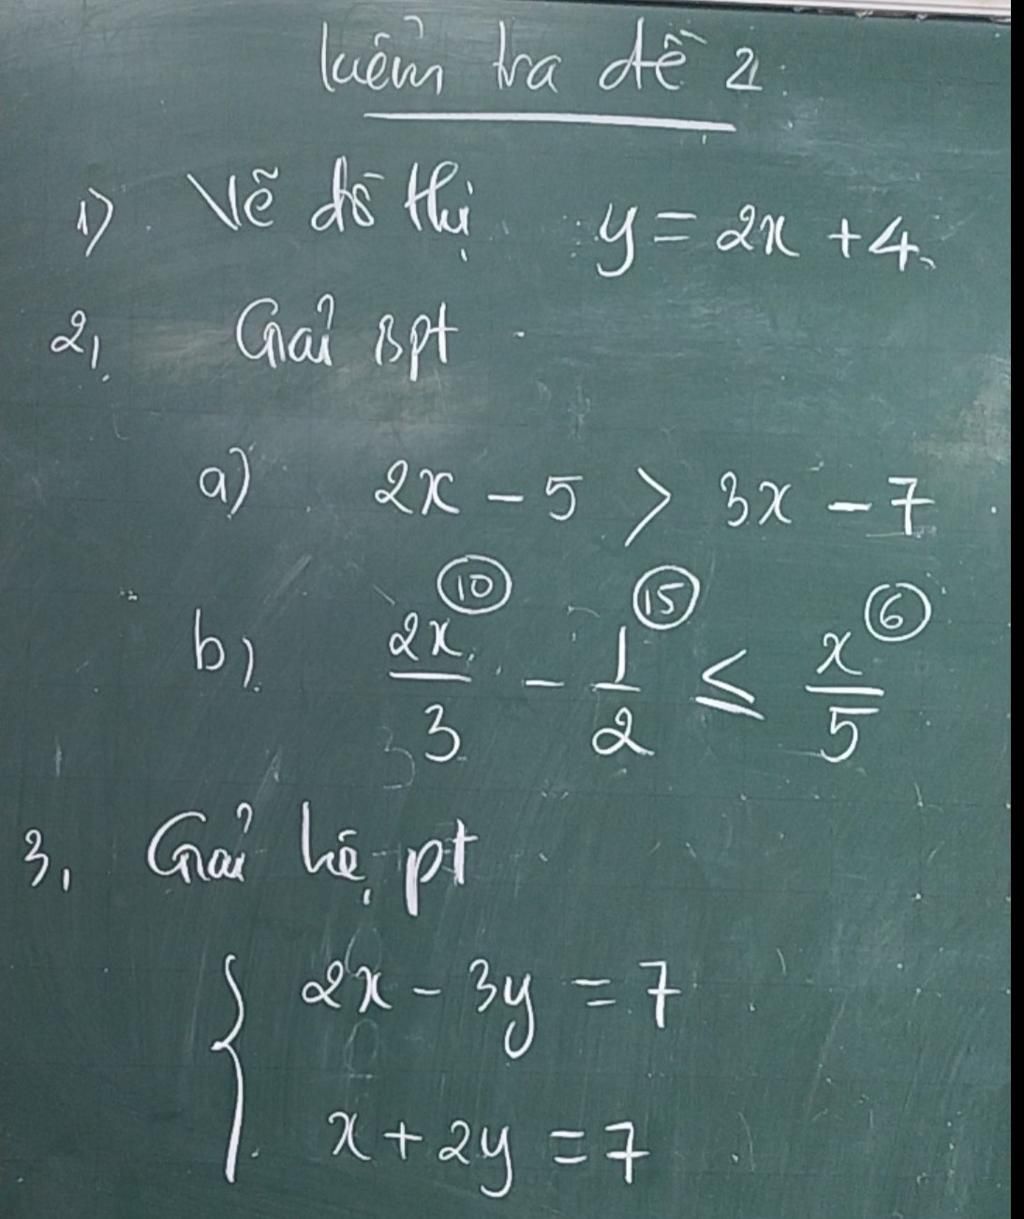 kiểm tra đề 2
1) Vẽ đồ thị y = 2x + 4
2, Giải Bpt
a) 2x - 5 > 3x - 7
b) 2x/3 (10) - 1/2 (15) ≤ x/5 (6)
3, Giải hệ pt
{ 2x - 3y = 7
x + 2y = 7